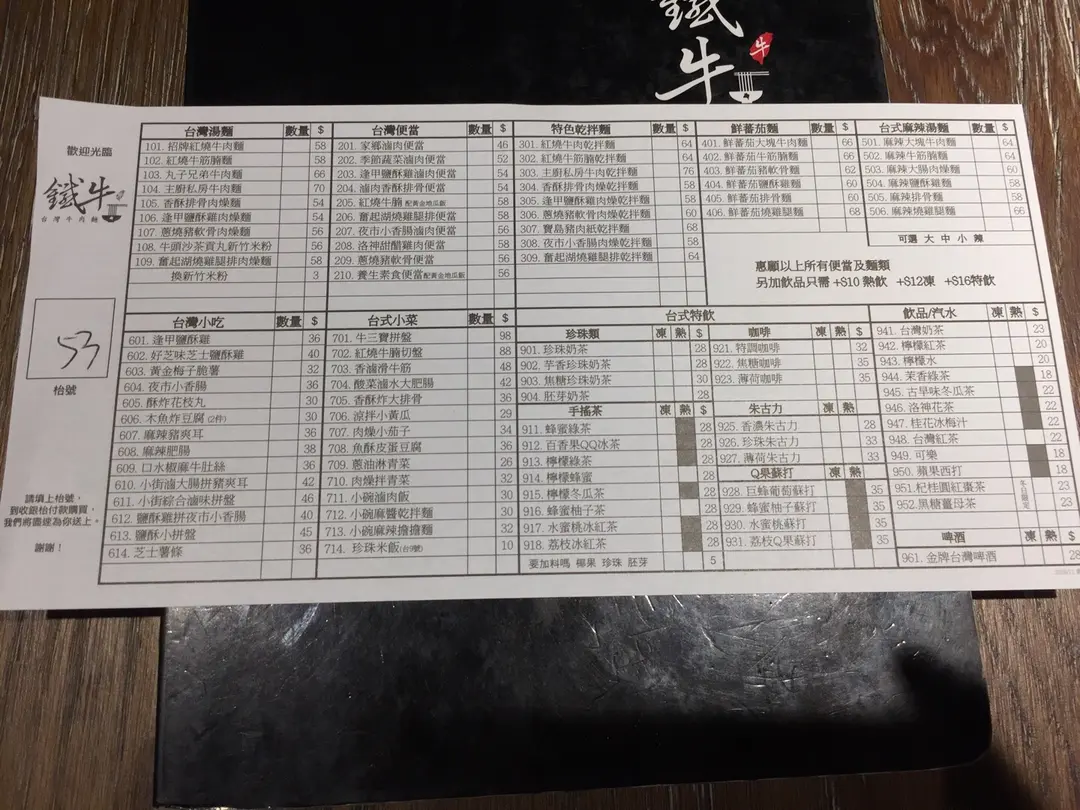 鐵牛
牛
歡迎光臨
鐵牛
台灣牛肉麵
53
枱號
請填上枱號，
到收銀枱付款購買，
我們將盡速為你送上。
謝謝！
台灣湯麵 數量 $
101. 招牌紅燒牛肉麵 58
102. 紅燒牛筋腩麵 58
103. 丸子兄弟牛肉麵 66
104. 主廚私房牛肉麵 70
105. 香酥排骨肉燥麵 54
106. 逢甲鹽酥雞肉燥麵 54
107. 蔥燒豬軟骨肉燥麵 56
108. 牛頭沙茶貢丸新竹米粉 56
109. 奮起湖燒雞腿排肉燥麵 58
換新竹米粉 3
台灣便當 數量 $
201. 家鄉滷肉便當 46
202. 季節蔬菜滷肉便當 52
203. 逢甲鹽酥雞滷肉便當 54
204. 滷肉香酥排骨便當 54
205. 紅燒牛腩 配黃金地瓜飯 58
206. 奮起湖燒雞腿排便當 56
207. 夜市小香腸滷肉便當 56
208. 洛神甜醋雞肉便當 58
209. 蔥燒豬軟骨便當 56
210. 養生素食便當 配黃金地瓜飯 56
特色乾拌麵 數量 $
301. 紅燒牛肉乾拌麵 64
302. 紅燒牛筋腩乾拌麵 64
303. 主廚私房牛肉乾拌麵 76
304. 香酥排骨肉燥乾拌麵 58
305. 逢甲鹽酥雞肉燥乾拌麵 58
306. 蔥燒豬軟骨肉燥乾拌麵 60
307. 寶島豬肉紙乾拌麵 68
308. 夜市小香腸肉燥乾拌麵 58
309. 奮起湖燒雞腿乾拌麵 64
鮮蕃茄麵 數量 $
401. 鮮蕃茄大塊牛肉麵 66
402. 鮮蕃茄牛筋腩麵 66
403. 鮮蕃茄豬軟骨麵 62
404. 鮮蕃茄鹽酥雞麵 60
405. 鮮蕃茄排骨麵 60
406. 鮮蕃茄燒雞腿麵 68
台式麻辣湯麵 數量 $
501. 麻辣大塊牛肉麵 64
502. 麻辣牛筋腩麵 64
503. 麻辣大腸肉燥麵 58
504. 麻辣鹽酥雞麵 58
505. 麻辣排骨麵 58
506. 麻辣燒雞腿麵 66
可選 大 中 小 辣
惠顧以上所有便當及麵類
另加飲品只需 +$10 熱飲 +$12凍 +$16特飲
台灣小吃 數量 $
601. 逢甲鹽酥雞 36
602. 好芝味芝士鹽酥雞 40
603. 黃金梅子脆薯 32
604. 夜市小香腸 36
605. 酥炸花枝丸 30
606. 木魚炸豆腐 (2件) 30
607. 麻辣豬爽耳 36
608. 麻辣肥腸 38
609. 口水椒麻牛肚絲 36
610. 小街滷大腸拼豬爽耳 42
611. 小街綜合滷味拼盤 46
612. 鹽酥雞拼夜市小香腸 40
613. 鹽酥小拼盤 45
614. 芝士薯條 36
台式小菜 數量 $
701. 牛三寶拼盤 98
702. 紅燒牛腩切盤 88
703. 香滷滑牛筋 48
704. 酸菜滷水大肥腸 42
705. 香酥炸大排骨 36
706. 涼拌小黃瓜 29
707. 肉燥小茄子 34
708. 魚酥皮蛋豆腐 36
709. 蔥油淋青菜 26
710. 肉燥拌青菜 32
711. 小碗滷肉飯 30
712. 小碗麻醬乾拌麵 30
713. 小碗麻辣擔擔麵 32
714. 珍珠米飯(台9號) 10
台式特飲
珍珠類 凍 熱 $
901. 珍珠奶茶 28
902. 芋香珍珠奶茶 28
903. 焦糖珍珠奶茶 30
904. 胚芽奶茶 28
手搖茶 凍 熱 $
911. 蜂蜜綠茶 28
912. 百香果QQ冰茶 28
913. 檸檬綠茶 28
914. 檸檬蜂蜜 28
915. 檸檬冬瓜茶 28
916. 蜂蜜柚子茶 28
917. 水蜜桃冰紅茶 28
918. 荔枝冰紅茶 28
要加料嗎 椰果 珍珠 胚芽 5
咖啡 凍 熱 $
921. 特調咖啡 32
922. 焦糖咖啡 35
923. 薄荷咖啡 35
朱古力 凍 熱
925. 香濃朱古力 28
926. 珍珠朱古力 33
927. 薄荷朱古力 33
Q果蘇打 凍 熱
928. 巨蜂葡萄蘇打 35
929. 蜂蜜柚子蘇打 35
930. 水蜜桃蘇打 35
931. 荔枝Q果蘇打 35
飲品/汽水 凍 熱 $
941. 台灣奶茶 23
942. 檸檬紅茶 20
943. 檸檬水 20
944. 茉香綠茶 18
945. 古早味冬瓜茶 22
946. 洛神花茶 22
947. 桂花冰梅汁 22
948. 台灣紅茶 22
949. 可樂 18
950. 蘋果西打 18
951. 杞桂圓紅棗茶 冬日限定 23
952. 黑糖薑母茶 23
啤酒 凍 熱 $
961. 金牌台灣啤酒 28